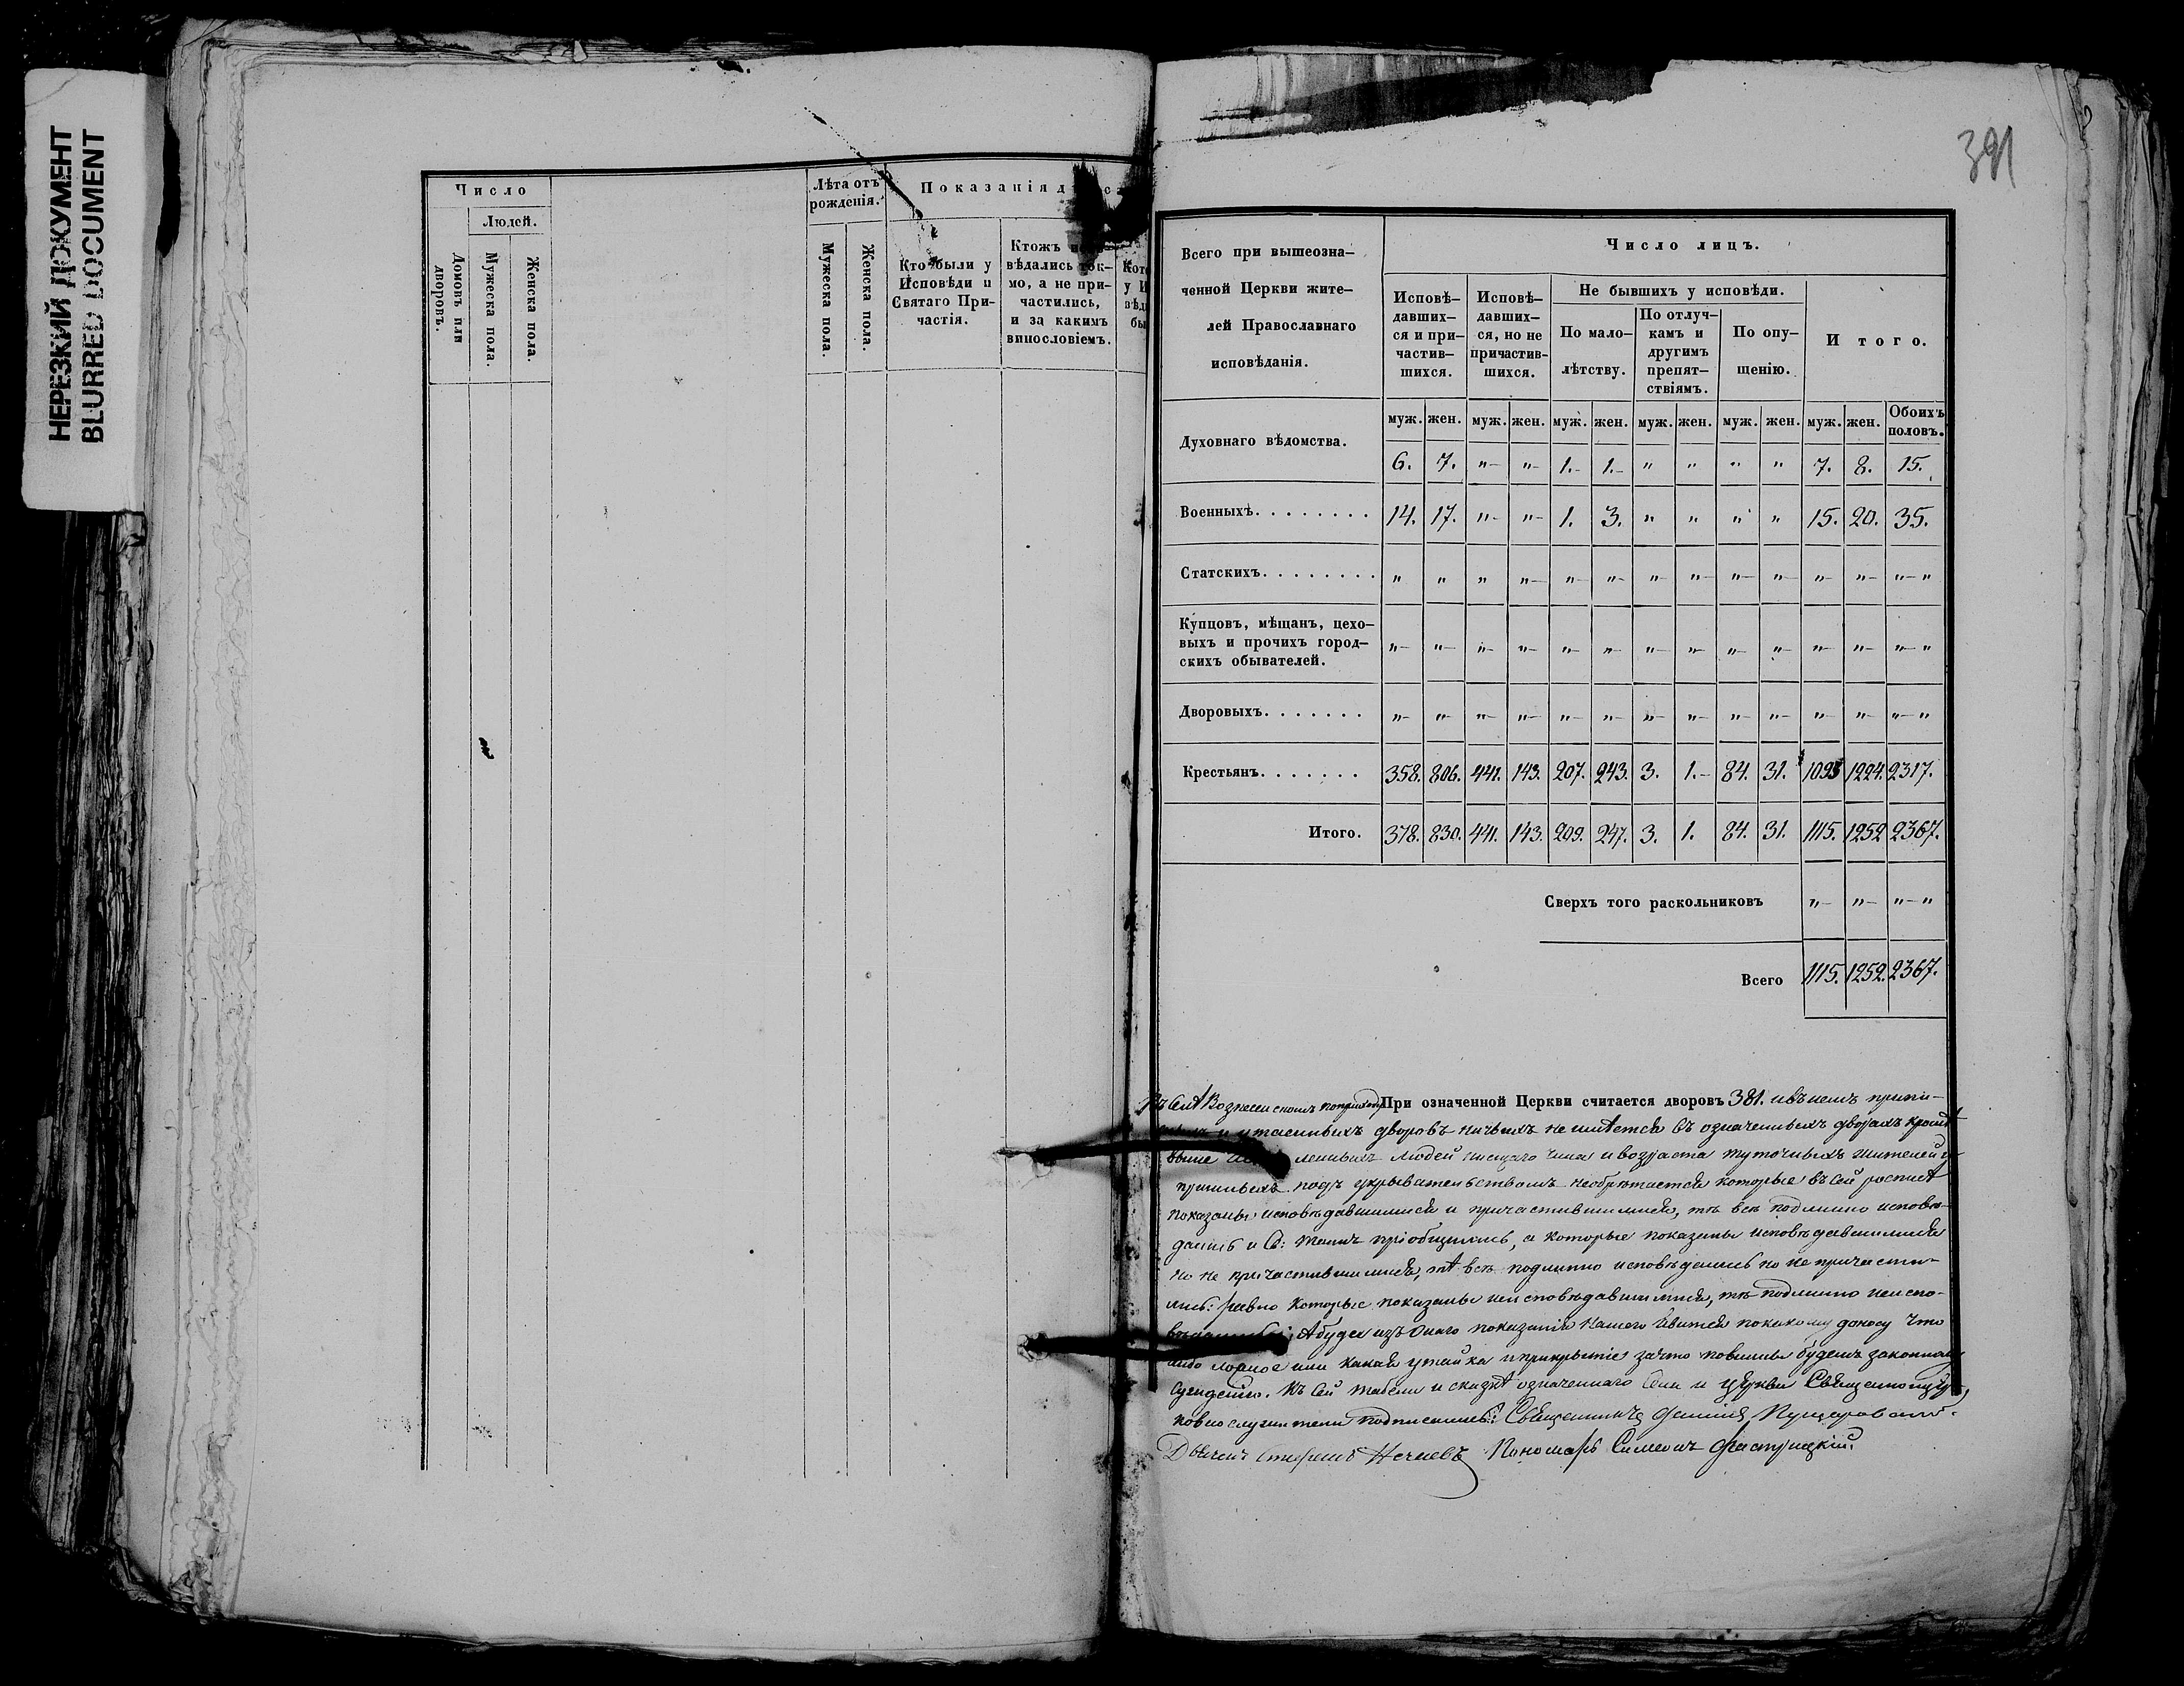 НЕРЕЗКИЙ ДОКУМЕНТ
BLURRED DOCUMENT
Число
Людей.
Домовъ или дворовъ.
Мужеска пола.
Женска пола.
Лѣта отъ рожденія.
Мужеска пола.
Женска пола.
Показанія
Кто были у Исповѣди и Святаго Причастія.
Ктожъ
вѣдались ток-
мо, а не при-
частились,
и за какимъ
винословіемъ.
391
Всего при вышеозна-
ченной Церкви жите-
лей Православнаго
исповѣданія.
Число лицъ.
Исповѣ-
давших-
ся и при-
частив-
шихся.
Исповѣ-
давших-
ся, но не
причастив-
шихся.
Не бывшихъ у исповѣди.
По мало-
лѣтству.
По отлуч-
камъ и
другимъ
препят-
ствіямъ.
По опу-
щенію.
Итого.
муж. жен. муж. жен. муж. жен. муж. жен. муж. жен. муж. жен. Обоихъ половъ.
Духовнаго вѣдомства. 6. 7. "- "- 1.- 1.- " " " " 7. 8. 15.
Военныхъ. . . . . . . . 14. 17. "- "- 1. 3. " " " " 15. 20. 35.
Статскихъ. . . . . . . . " " " "- "- "- "- "- "- "- "- "- "- "
Купцовъ, мѣщанъ, цехо-
выхъ и прочихъ город-
скихъ обывателей. "- "- "- "- "- "- "- "- "- "- "- "- "- "
Дворовыхъ. . . . . . . "- "- "- "- "- "- "- "- "- "- "- "- "- "
Крестьянъ. . . . . . . 358. 806. 441. 143. 207. 243. 3. 1.- 84. 31. 1093 1224. 2317.
Итого. 378. 830. 441. 143. 209. 247. 3. 1. 84. 31. 1115. 1252 2367.
Сверхъ того раскольниковъ "- "- "- "
Всего 1115. 1252. 2367.
При означенной Церкви считается дворовъ 381.
и утаенныхъ дворовъ ничьихъ не имѣется въ означенныхъ дворахъ кромѣ
выше людей низщаго чина и возраста туточныхъ жителей и
пришлыхъ подъ укрывательствомъ необрѣтается которые въ сей росписѣ
показаны исповѣдавшимися и причастившимися, тѣ всѣ подлинно исповѣ-
дались и Св: Таинъ пріобщились, а которые показаны исповѣдавшимися
но не причастившимися, тѣ всѣ подлинно исповѣдались но не причасти-
лись: равно которые показаны неисповѣдавшимися, тѣ подлинно неиспо-
А буде изъ онаго показанія нашего явится по какому доносу что
либо ложное или какая утайка и прикрытіе за что повинны будемъ законному
сужденію. Къ сей табели и сказкѣ означеннаго села и церкви
подписались: Священникъ
Нечаевъ Пономарь Симеонъ